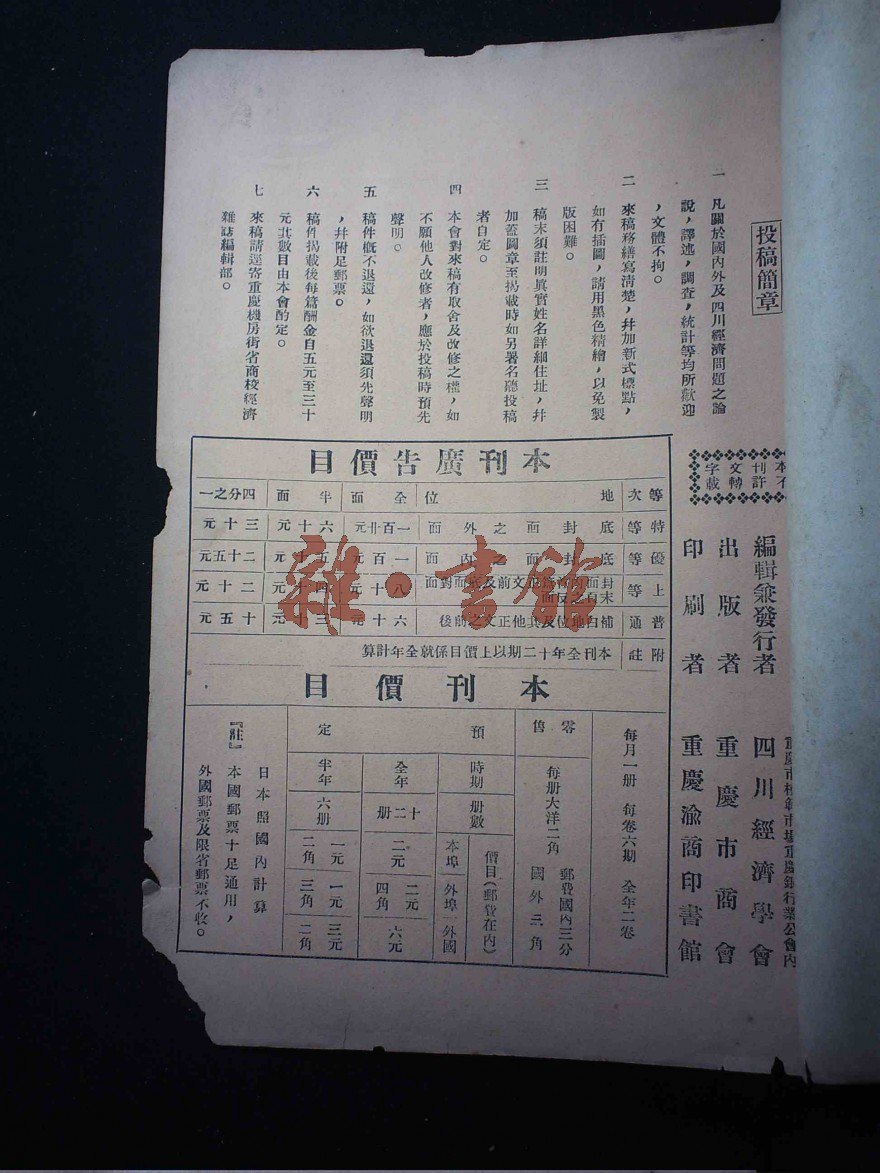 投稿簡章
一 凡關於國內外及四川經濟問題之論
說，譯述，調查，統計等均所歡迎
，文體不拘。
二 來稿務繕寫清楚，幷加新式標點，
如有插圖，請用黑色精繪，以免製
版困難。
三 稿末須註明眞實姓名詳細住址，幷
加蓋圖章至揭載時如另署名聽投稿
者自定。
四 本會對來稿有取舍及改修之權，如
不願他人改修者，應於投稿時預先
聲明。
五 稿件概不退還，如欲退還須先聲明
，幷附足郵票。
六 稿件揭載後每篇酬金自五元至三十
元其數目由本會酌定。
七 來稿請逕寄重慶機房街省商校經濟
雜誌編輯部。
本刊文字
不許轉載
編輯兼發行者 四川經濟學會
出版者 重慶市商會
印刷者 重慶渝商印書館
本刊廣告價目
等次 地位 全面 半面 四分之一
特等 底封面之外面 一百廿元 六十元 三十元
優等 底封面之內面 一百元 五十元 二十五元
上等 八十元 四十元 二十元
普通 補白地位及其他正文之前後 六十元 三十元 十五元
附註 本刊全年十二期以上價目係就全年計算
本刊價目
每月一册 每卷六期 全年二卷
零售 每册大洋二角 郵費國內三分 國外三角
預定
時期 册數 價目(郵費在內)
本埠 外埠 國外
全年 十二册 二元 二元四角 六元
半年 六册 一元二角 一元三角 三元二角
『註』
日本照國內計算
本國郵票十足通用，
外國郵票及限省郵票不收。
雜·書館